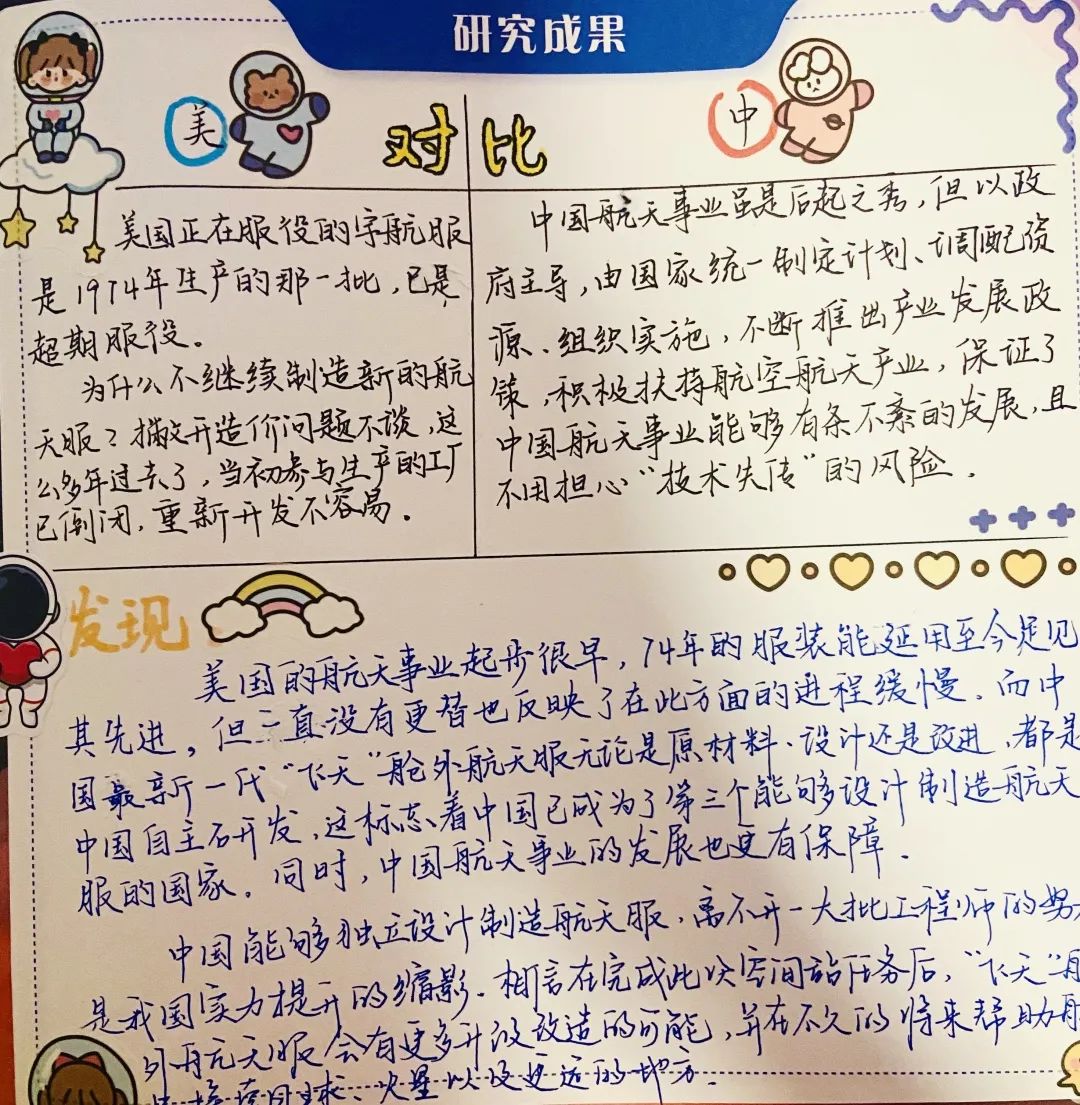 研究成果
美
对比
中
美国正在服役的宇航服
是1974年生产的那一批，已是
超期服役。
为什么不继续制造新的航
天服？撇开造价问题不谈，这
么多年过去了，当初参与生产的工厂
已倒闭，重新开发不容易。
中国航天事业虽是后起之秀，但以政
府主导，由国家统一制定计划、调配资
源、组织实施，不断推出产业发展政
策，积极扶持航空航天产业，保证了
中国航天事业能够有条不紊的发展，且
不用担心“技术失传”的风险．
发现
美国的航天事业起步很早，74年的服装能延用至今足见
其先进，但一直没有更替也反映了在此方面的进程缓慢．而中
国最新一代“飞天”舱外航天服无论是原材料、设计还是改进，都是
中国自主研发，这标志着中国已成为了第三个能够设计制造航天
服的国家．同时，中国航天事业的发展也更有保障．
中国能够独立设计制造航天服，离不开一大批工程师的努
是我国实力提升的缩影．相信在完成此次空间站任务后，“飞天”
外航天服会有更多升级改造的可能，并在不久的将来帮助
月球、火星以及更远的地方．